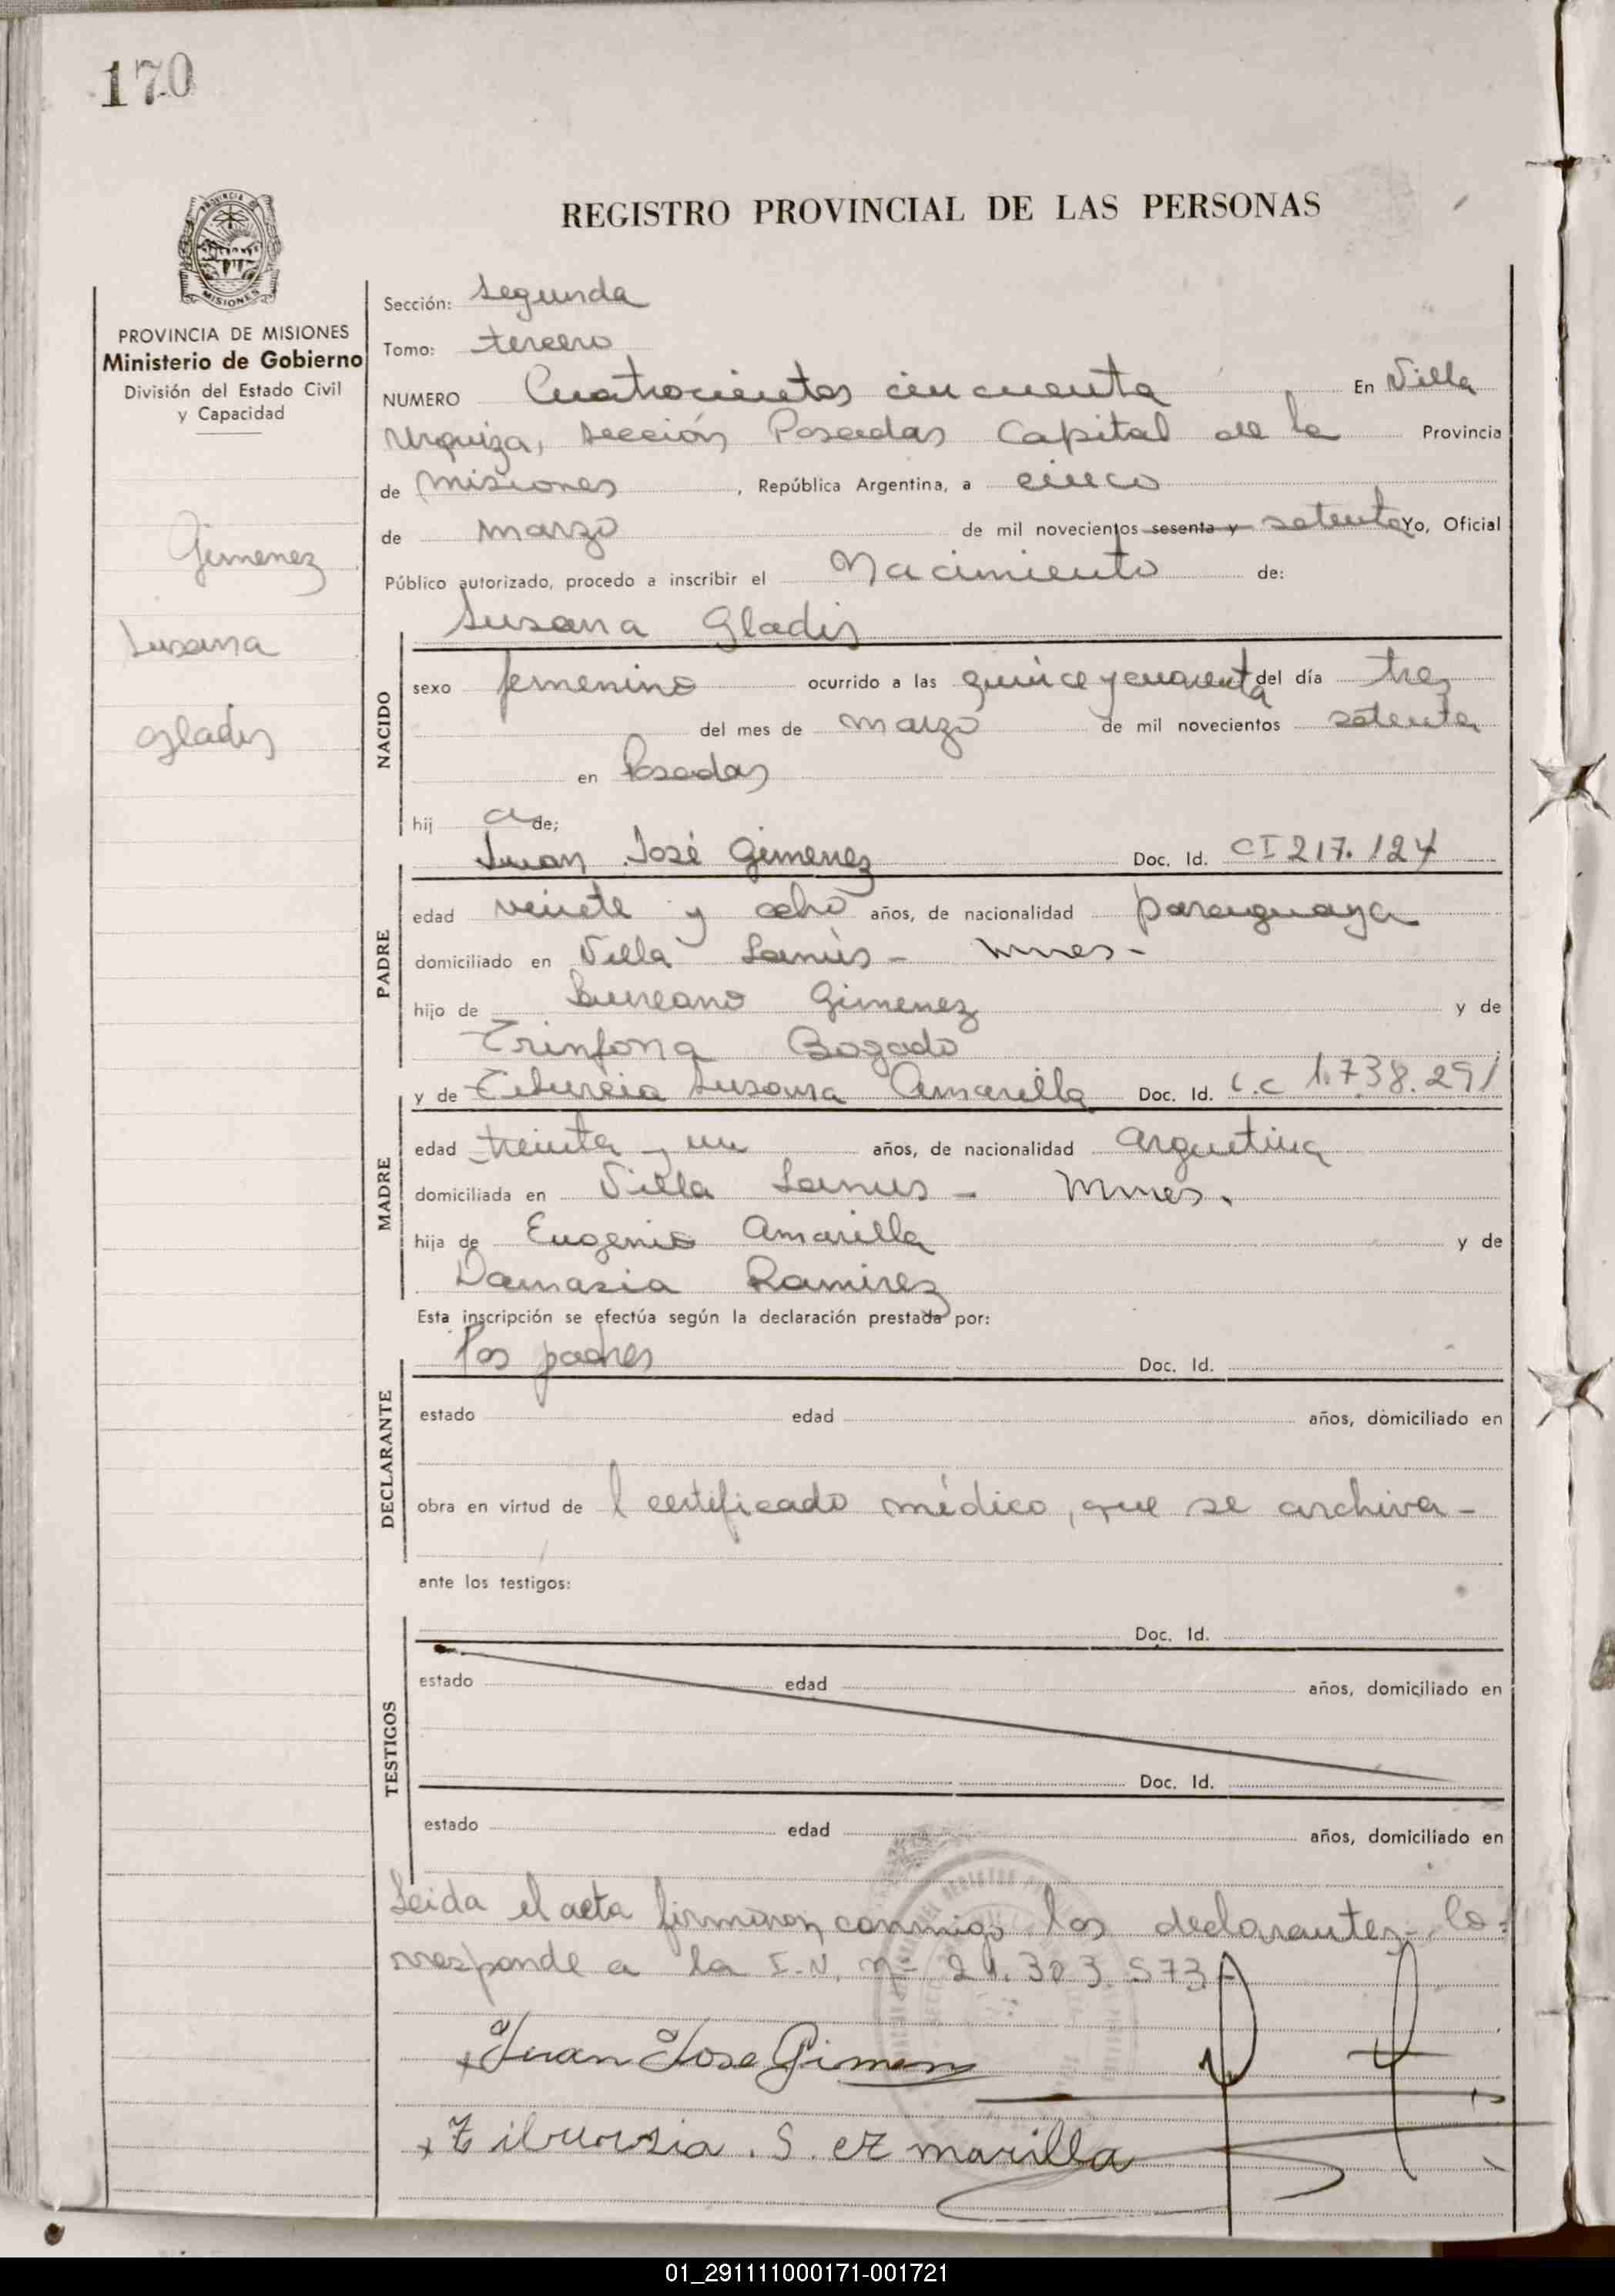 170
REGISTRO PROVINCIAL DE LAS PERSONAS
PROVINCIA DE
MISIONES
PROVINCIA DE MISIONES
Ministerio de Gobierno
División del Estado Civil
y Capacidad
Gimenez
Susana
Gladis
Sección: Segunda
Tomo: tercero
NUMERO Cuatrocientos cincuenta En Villa
Urquiza, sección Posadas Capital de la Provincia
de Misiones, República Argentina, a cinco
de marzo de mil novecientos sesenta y setenta Yo, Oficial
Público autorizado, procedo a inscribir el Nacimiento de:
Susana Gladis
NACIDO
sexo femenino ocurrido a las quince y cuarenta del día tres
del mes de marzo de mil novecientos setenta
en Posadas
hij a de;
Juan José Gimenez Doc. Id. CI 217.124
PADRE
edad veinte y ocho años, de nacionalidad paraguaya
domiciliado en Villa Lanús - Mnes -
hijo de Laureano Gimenez y de
Trinfona Bogado
y de Tiburcia Susana Amarilla Doc. Id. L.C 1.738.291
MADRE
edad treinta y un años, de nacionalidad argentina
domiciliada en Villa Lanus - Mnes.
hija de Eugenio Amarilla y de
Damasia Ramirez
Esta inscripción se efectúa según la declaración prestada por:
los padres Doc. Id.
DECLARANTE
estado edad años, domiciliado en
obra en virtud de l certificado médico, que se archiva -
ante los testigos:
Doc. Id.
TESTIGOS
estado edad años, domiciliado en
Doc. Id.
estado edad años, domiciliado en
Leida el acta firmaron conmigo los declarantes - Co-
rresponde a la I.N. Nº 21.303.573 -
x Juan Jose Gimen
x Tiburisia . S. Amarilla
01_291111000171-001721